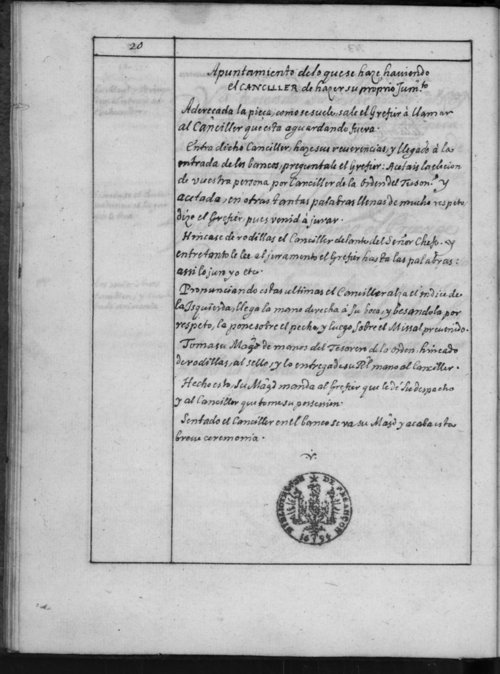 20
Apuntamiento de lo que se haze haviendo
el CANCILLER de hazer su proprio Juramto
Adereçada la pieça, como se suele, sale el Grefier à llamar
al Canciller que esta aguardando fuera.
Entra dicho Canciller, haze sus reverencias, y llegado à la
entrada de los bancos, preguntale el Grefier: Acetais la elecion
de vuestra persona por Canciller de la orden del Tuson. Y
acetada en otras tantas palabras llenas de mucho respeto
dize el Grefier, pues venid à jurar.
Hincase de rodillas el Canciller delante del Señor Chefe. y
entretanto le lee al juramento el Grefier hasta las palabras:
assi lo juro yo etc.
Pronunciando estas ultimas el Canciller alça el indice de
la Izquierda, llega la mano derecha à su boca, y besandola por
respeto, la pone sobre el pecho, y luego sobre el Missal prevenido.
Toma su Magd de manos del Tesorero de la orden hincado
de rodillas, el sello, y lo entrega de su Rl mano al Canciller.
Hecho esto, Su Magd manda al Grefier que le dè Su despacho
y al Canciller que tome su possession.
Sentado el Canciller en el banco se va su Magd y acaba esta
breve ceremonia.
BIBLIOTHECA DE BESANÇON
1694